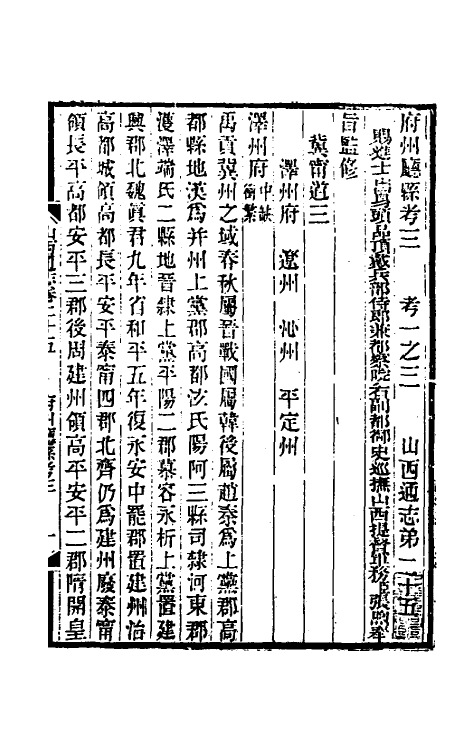 府州廳縣考三　考一之三　山西通志第二十五
賜進士出身頭品頂戴兵部侍郎兼都察院右副都御史巡撫山西提督軍務張煦奉
旨監修
冀甯道三
澤州府　遼州　沁州　平定州
澤州府中缺衝繁
禹貢冀州之域春秋屬晉戰國屬韓後屬趙秦爲上黨郡高
都縣地漢爲幷州上黨郡高都泫氏陽阿三縣司隸河東郡
濩澤端氏二縣地晉隸上黨平陽二郡慕容永析上黨置建
興郡北魏眞君九年省和平五年復永安中罷郡置建州治
高都城領高都長平安平泰甯四郡北齊仍爲建州廢泰甯
領長平高都安平三郡後周建州領高平安平二郡隋開皇
山西通志卷二十五　府州廳縣考三　一